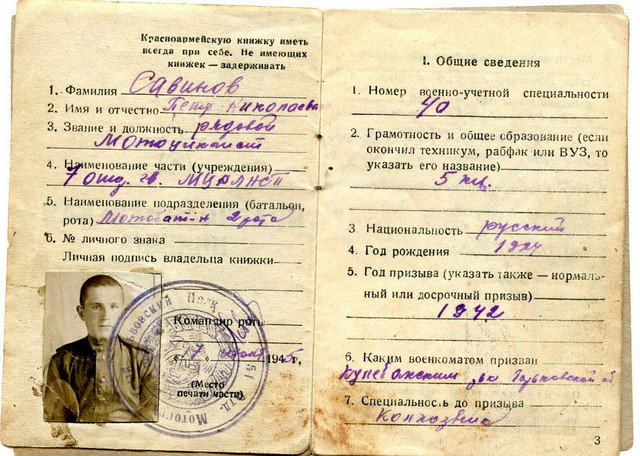 Красноармейскую книжку иметь
всегда при себе. Не имеющих
книжек — задерживать
1. Фамилия Савинов
2. Имя и отчество Петр Николаеви
3. Звание и должность рядовой
Мотоциклист
4. Наименование части (учреждения)
7 отд. гв.
5. Наименование подразделения (батальон,
рота) Мотобат-н 2 рота
6. № личного знака
Личная подпись владельца книжки
Командир роты
„ 17 " 194 5 г.
(Место
печати части)
I. Общие сведения
1. Номер военно-учетной специальности
40
2. Грамотность и общее образование (если
окончил техникум, рабфак или ВУЗ, то
указать его название)
5 кл.
3 Национальность русский
4. Год рождения 1924
5. Год призыва (указать также — нормаль-
ный или досрочный призыв)
1942
6. Каким военкоматом призван
рвк Горьковской
7. Специальность до призыва
Колхозник
3